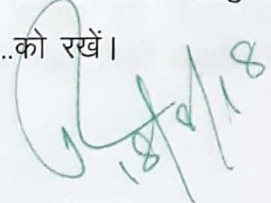 ..को रखें।
18/8/18